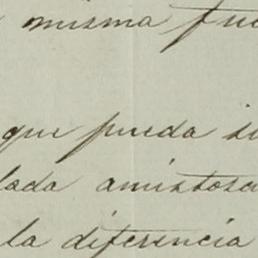 misma fue
que pueda si
lada amistosa
la diferencia